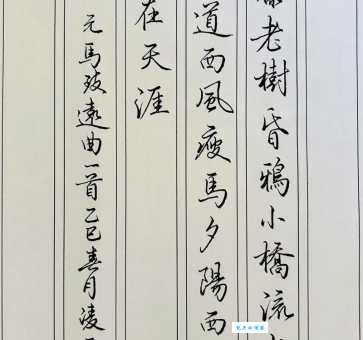 老樹昏鴉小橋流
道西風瘦馬夕陽西
在天涯
元馬致遠曲一首乙巳春月凌